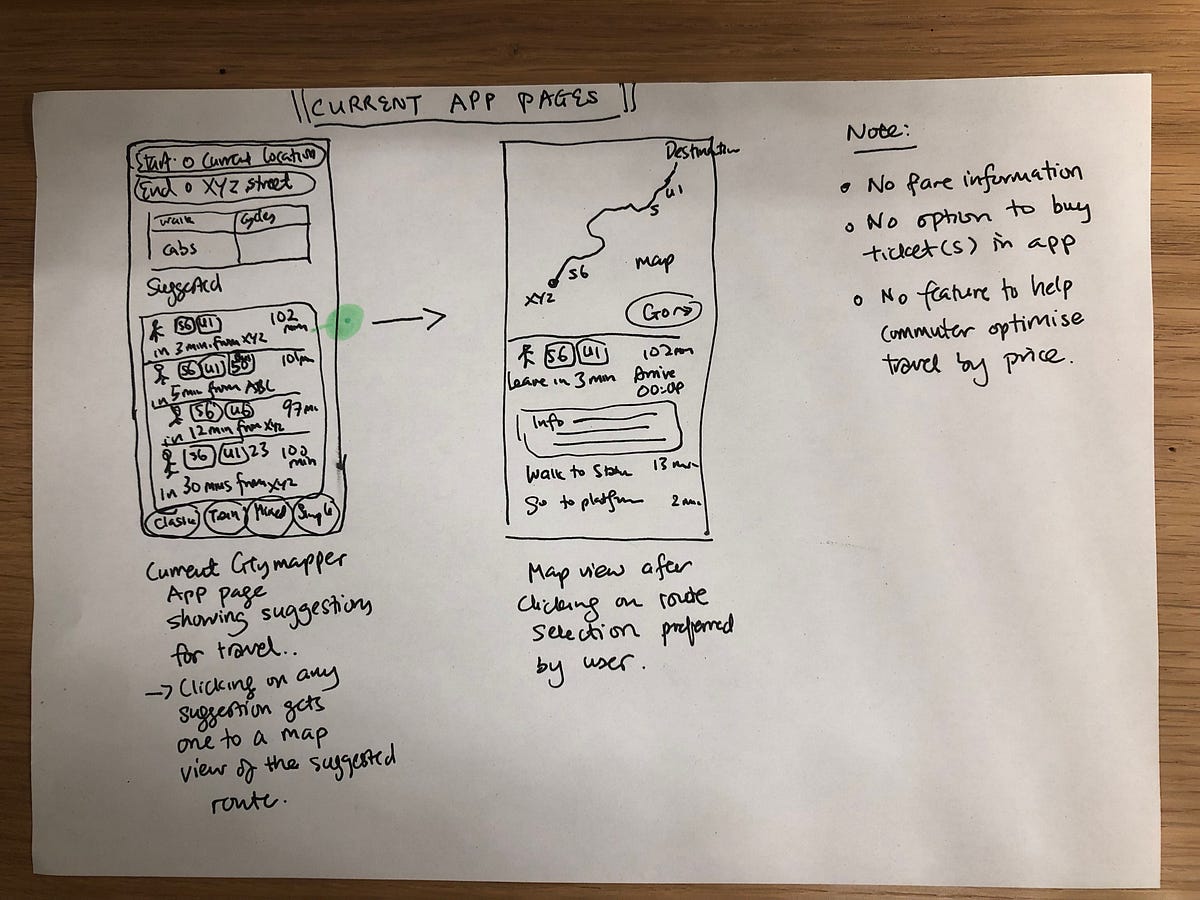 CURRENT APP PAGES
Start: o Current location
End o XYZ street
walk cycles
cabs
Suggested
S6 U1 102 min
in 3 min. from XYZ
S6 U1 50 101
in 5 min from ABC
S6 U6 97
in 12 min from XYZ
S6 U1 23 100 min
in 30 mins from XYZ
Classic Train Mixed Simple
Current Citymapper
App page
showing suggestions
for travel..
→ Clicking on any
suggestion gets
one to a map
view of the suggested
route.
Destination
U1
S
S6
map
XYZ
Go →
S6 U1 102 min
leave in 3 min Arrive
00:0P
Info
Walk to Station 13 min
Go to platform 2 min
Map view after
Clicking on route
selection preferred
by user.
Note:
• No fare information
• No option to buy
ticket(s) in app
• No feature to help
commuter optimise
travel by price.